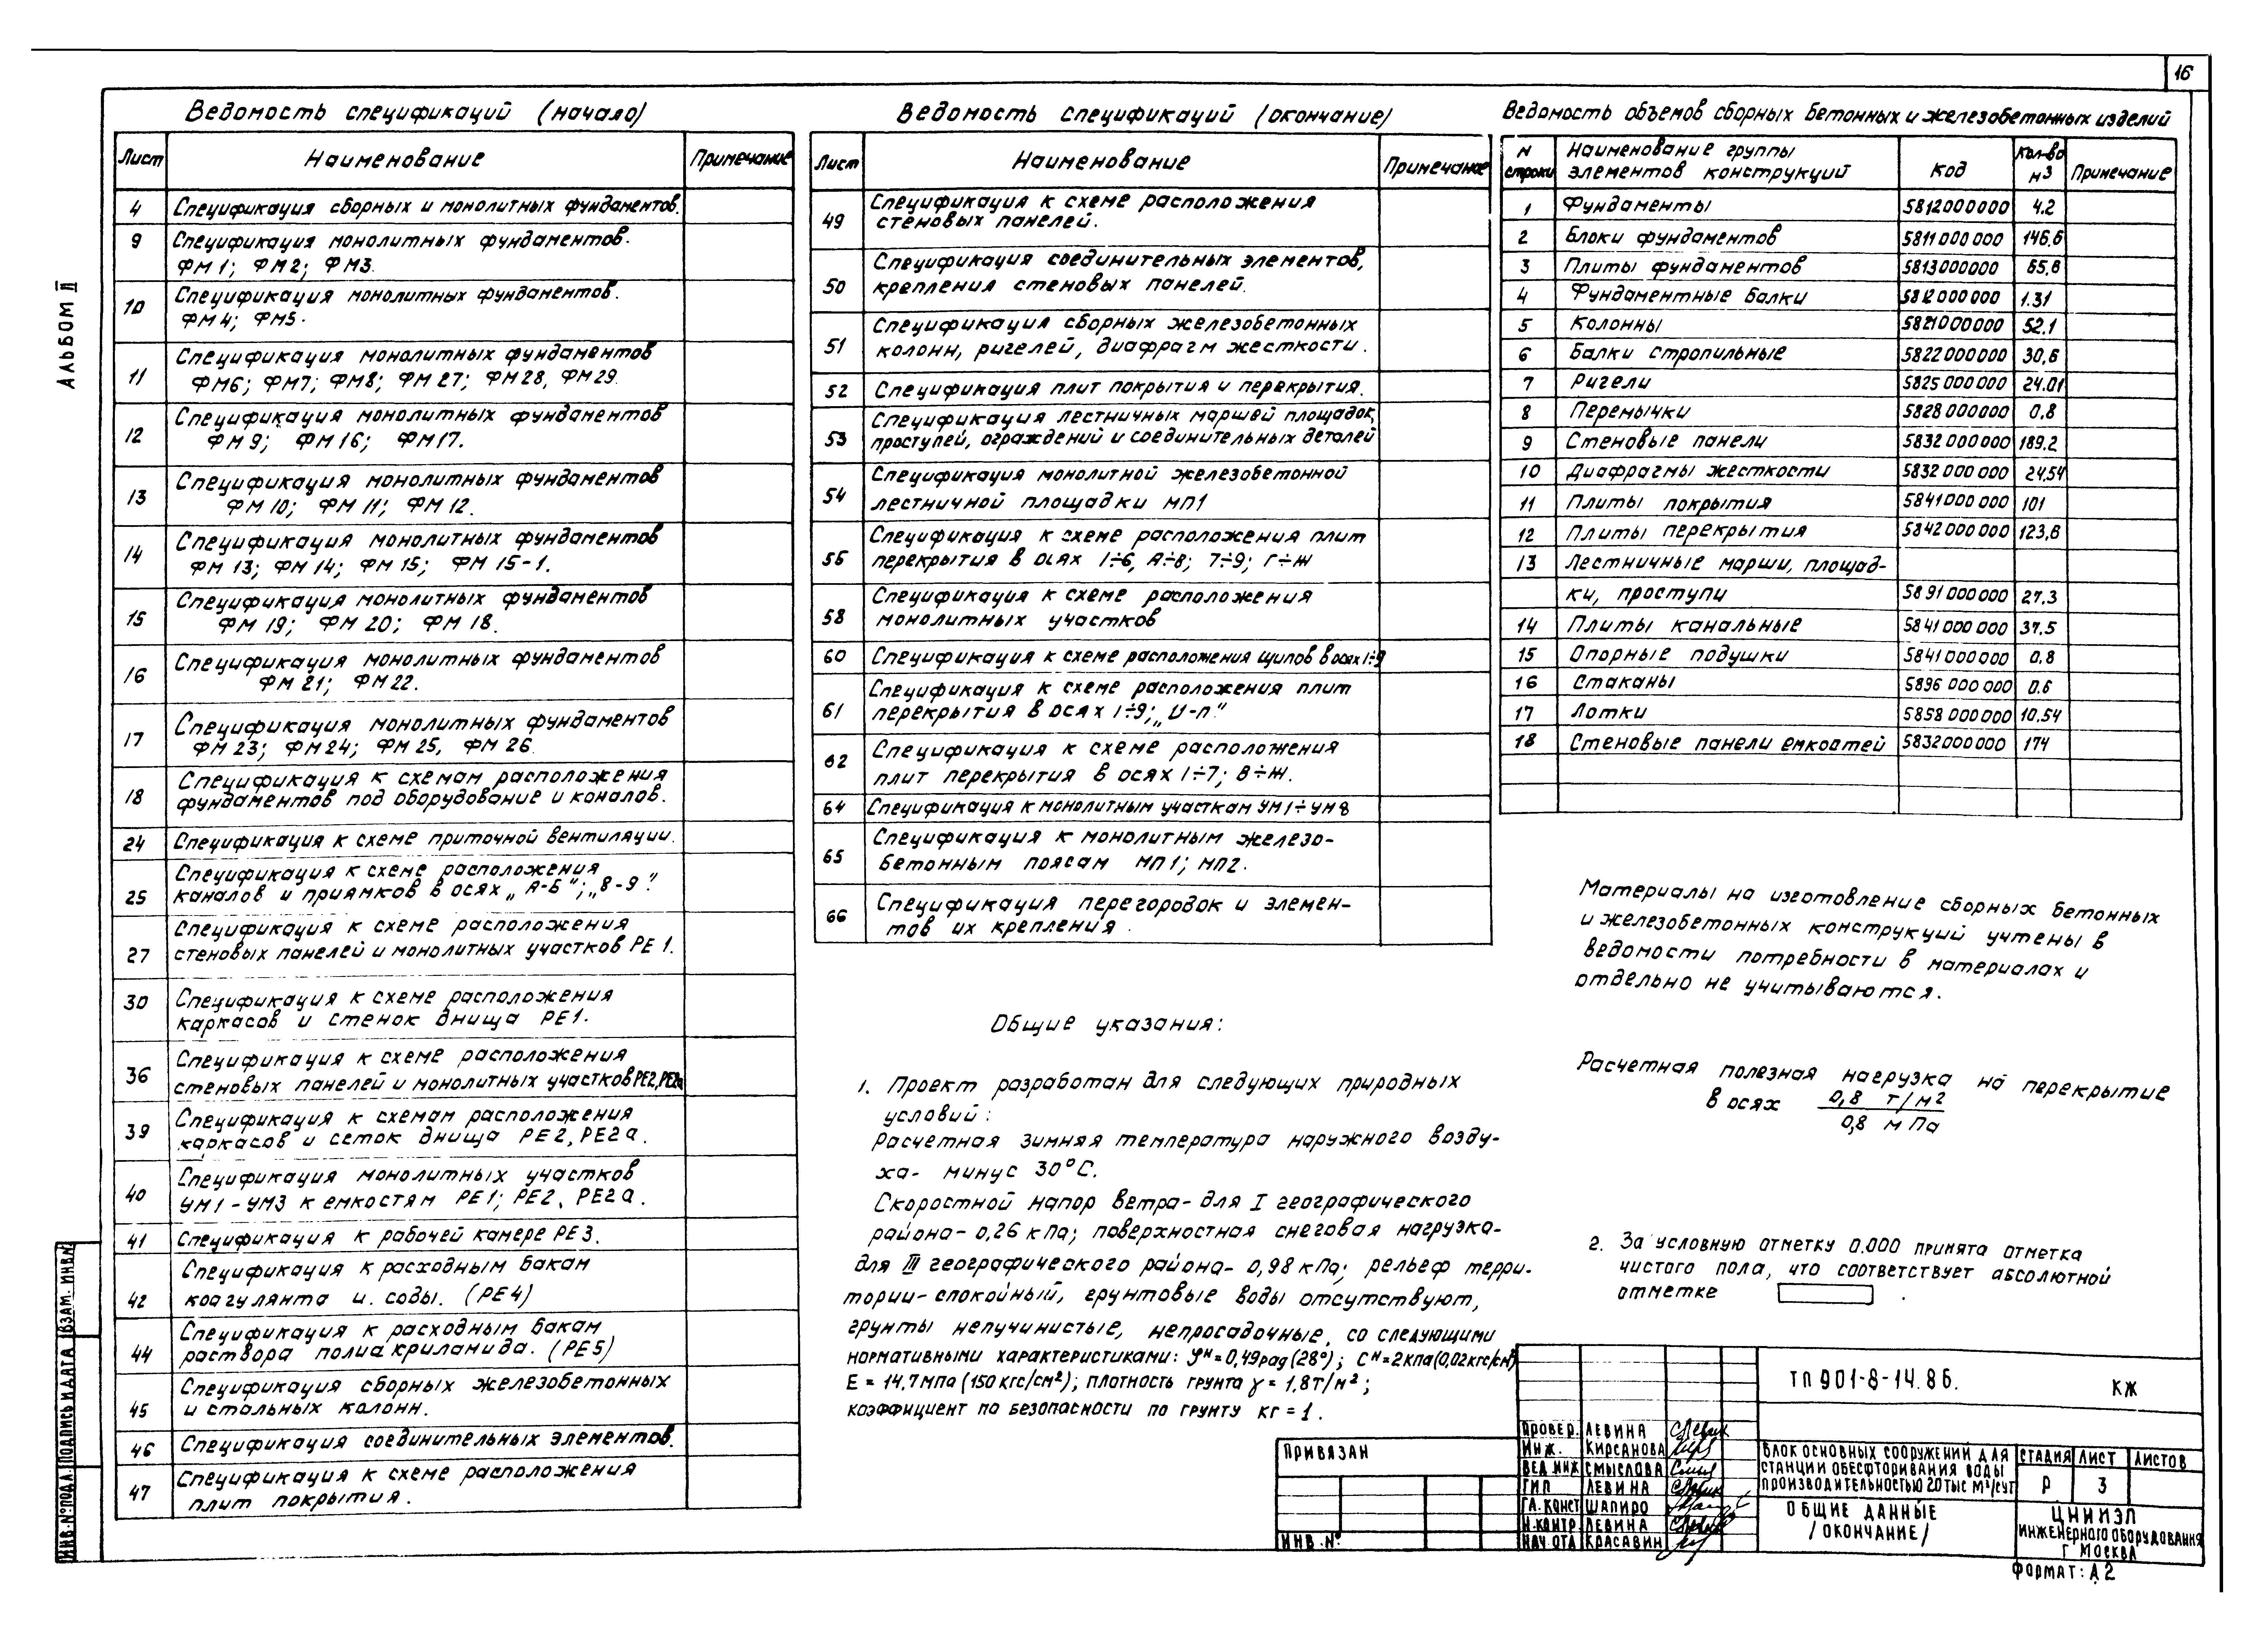 16
АЛЬБОМ II
Ведомость спецификаций (начало)
Лист Наименование Примечание
4 Спецификация сборных и монолитных фундаментов.
9 Спецификация монолитных фундаментов.
ФМ1; ФМ2; ФМ3.
10 Спецификация монолитных фундаментов.
ФМ4; ФМ5.
11 Спецификация монолитных фундаментов
ФМ6; ФМ7; ФМ8; ФМ27; ФМ28, ФМ29.
12 Спецификация монолитных фундаментов
ФМ9; ФМ16; ФМ17.
13 Спецификация монолитных фундаментов
ФМ10; ФМ11; ФМ12.
14 Спецификация монолитных фундаментов
ФМ13; ФМ14; ФМ15; ФМ15-1.
15 Спецификация монолитных фундаментов
ФМ19; ФМ20; ФМ18.
16 Спецификация монолитных фундаментов
ФМ21; ФМ22.
17 Спецификация монолитных фундаментов
ФМ23; ФМ24; ФМ25, ФМ26.
18 Спецификация к схемам расположения
фундаментов под оборудование и каналов.
24 Спецификация к схеме приточной вентиляции.
25 Спецификация к схеме расположения
каналов и приямков в осях „А-Б"; „8-9".
27 Спецификация к схеме расположения
стеновых панелей и монолитных участков РЕ1.
30 Спецификация к схеме расположения
каркасов и стенок днища РЕ1.
36 Спецификация к схеме расположения
стеновых панелей и монолитных участков РЕ2, РЕ2а
39 Спецификация к схемам расположения
каркасов и сеток днища РЕ2, РЕ2а.
40 Спецификация монолитных участков
УМ1-УМ3 к емкостям РЕ1; РЕ2, РЕ2а.
41 Спецификация к рабочей камере РЕ3.
42 Спецификация к расходным бакам
коагулянта и. соды. (РЕ4)
44 Спецификация к расходным бакам
раствора полиакриламида. (РЕ5)
45 Спецификация сборных железобетонных
и стальных колонн.
46 Спецификация соединительных элементов.
47 Спецификация к схеме расположения
плит покрытия.
Ведомость спецификаций (окончание)
Лист Наименование Примечание
49 Спецификация к схеме расположения
стеновых панелей.
50 Спецификация соединительных элементов,
крепления стеновых панелей.
51 Спецификация сборных железобетонных
колонн, ригелей, диафрагм жесткости.
52 Спецификация плит покрытия и перекрытия.
53 Спецификация лестничных маршей площадок,
проступей, ограждений и соединительных деталей
54 Спецификация монолитной железобетонной
лестничной площадки МП1
56 Спецификация к схеме расположения плит
перекрытия в осях 1÷6, А÷В; 7÷9; Г÷Ж
58 Спецификация к схеме расположения
монолитных участков
60 Спецификация к схеме расположения щипов в осях 1÷9
61 Спецификация к схеме расположения плит
перекрытия в осях 1÷9; „И-П"
62 Спецификация к схеме расположения
плит перекрытия в осях 1÷7; В÷Ж.
64 Спецификация к монолитным участкам УМ1÷УМ8
65 Спецификация к монолитным железо-
бетонным поясам МП1; МП2.
66 Спецификация перегородок и элемен-
тов их крепления.
Общие указания:
1. Проект разработан для следующих природных
условий:
Расчетная зимняя температура наружного возду-
ха- минус 30°С.
Скоростной напор ветра-для I географического
района-0,26 кПа; поверхностная снеговая нагрузка-
для III географического района- 0,98 кПа; рельеф терри-
тории-спокойный, грунтовые воды отсутствуют,
грунты непучинистые, непросадочные, со следующими
нормативными характеристиками: φн=0,49рад(28°); Сн=2кПа(0,02кгс/см²)
Е = 14,7МПа (150кгс/см²); плотность грунта γ = 1,8т/м²;
коэффициент по безопасности по грунту кг = 1.
Ведомость объемов сборных бетонных и железобетонных изделий
N строки Наименование группы элементов конструкций Код Кол-во м3 Примечание
1 Фундаменты 5812000000 4.2
2 Блоки фундаментов 5811000000 146.6
3 Плиты фундаментов 5813000000 65.6
4 Фундаментные балки 5812000000 1.31
5 Колонны 5821000000 52.1
6 Балки стропильные 5822000000 30,6
7 Ригели 5825000000 24.01
8 Перемычки 5828000000 0.8
9 Стеновые панели 5832000000 189.2
10 Диафрагмы жесткости 5832000000 24,54
11 Плиты покрытия 5841000000 101
12 Плиты перекрытия 5842000000 123,6
13 Лестничные марши, площад-
ки, проступи 5891000000 27.3
14 Плиты канальные 5841000000 37.5
15 Опорные подушки 5841000000 0.8
16 Стаканы 5896000000 0.6
17 Лотки 5858000000 10.54
18 Стеновые панели емкоатей 5832000000 174
Материалы на изготовление сборных бетонных
и железобетонных конструкций учтены в
ведомости потребности в материалах и
отдельно не учитываются.
Расчетная полезная нагрузка на перекрытие
в осях 0,8 т/м2
0,8 мПа
2. За условную отметку 0.000 принята отметка
чистого пола, что соответствует абсолютной
отметке .
ТП 901-8-14.86. КЖ
ПРОВЕР. ЛЕВИНА
ИНЖ. КИРСАНОВА
ВЕД ИНЖ СМЫСЛОВА
ГИП ЛЕВИНА
ГЛ. КОНСТ ШАПИРО
Н.КОНТР. ЛЕВИНА
НАЧ ОТД КРАСАВИН
БЛОК ОСНОВНЫХ СООРУЖЕНИЙ ДЛЯ
СТАНЦИИ ОБЕСФТОРИВАНИЯ ВОДЫ
ПРОИЗВОДИТЕЛЬНОСТЬЮ 20 ТЫС М³/СУТ
СТАДИЯ ЛИСТ ЛИСТОВ
Р 3
ОБЩИЕ ДАННЫЕ
/ОКОНЧАНИЕ/
ЦНИИЭП
ИНЖЕНЕРНОГО ОБОРУДОВАНИЯ
Г МОСКВА
ФОРМАТ: А2
ПРИВЯЗАН
ИНВ. №
ИНВ.№ПОДЛ. ПОДПИСЬ И ДАТА ВЗАМ. ИНВ.№